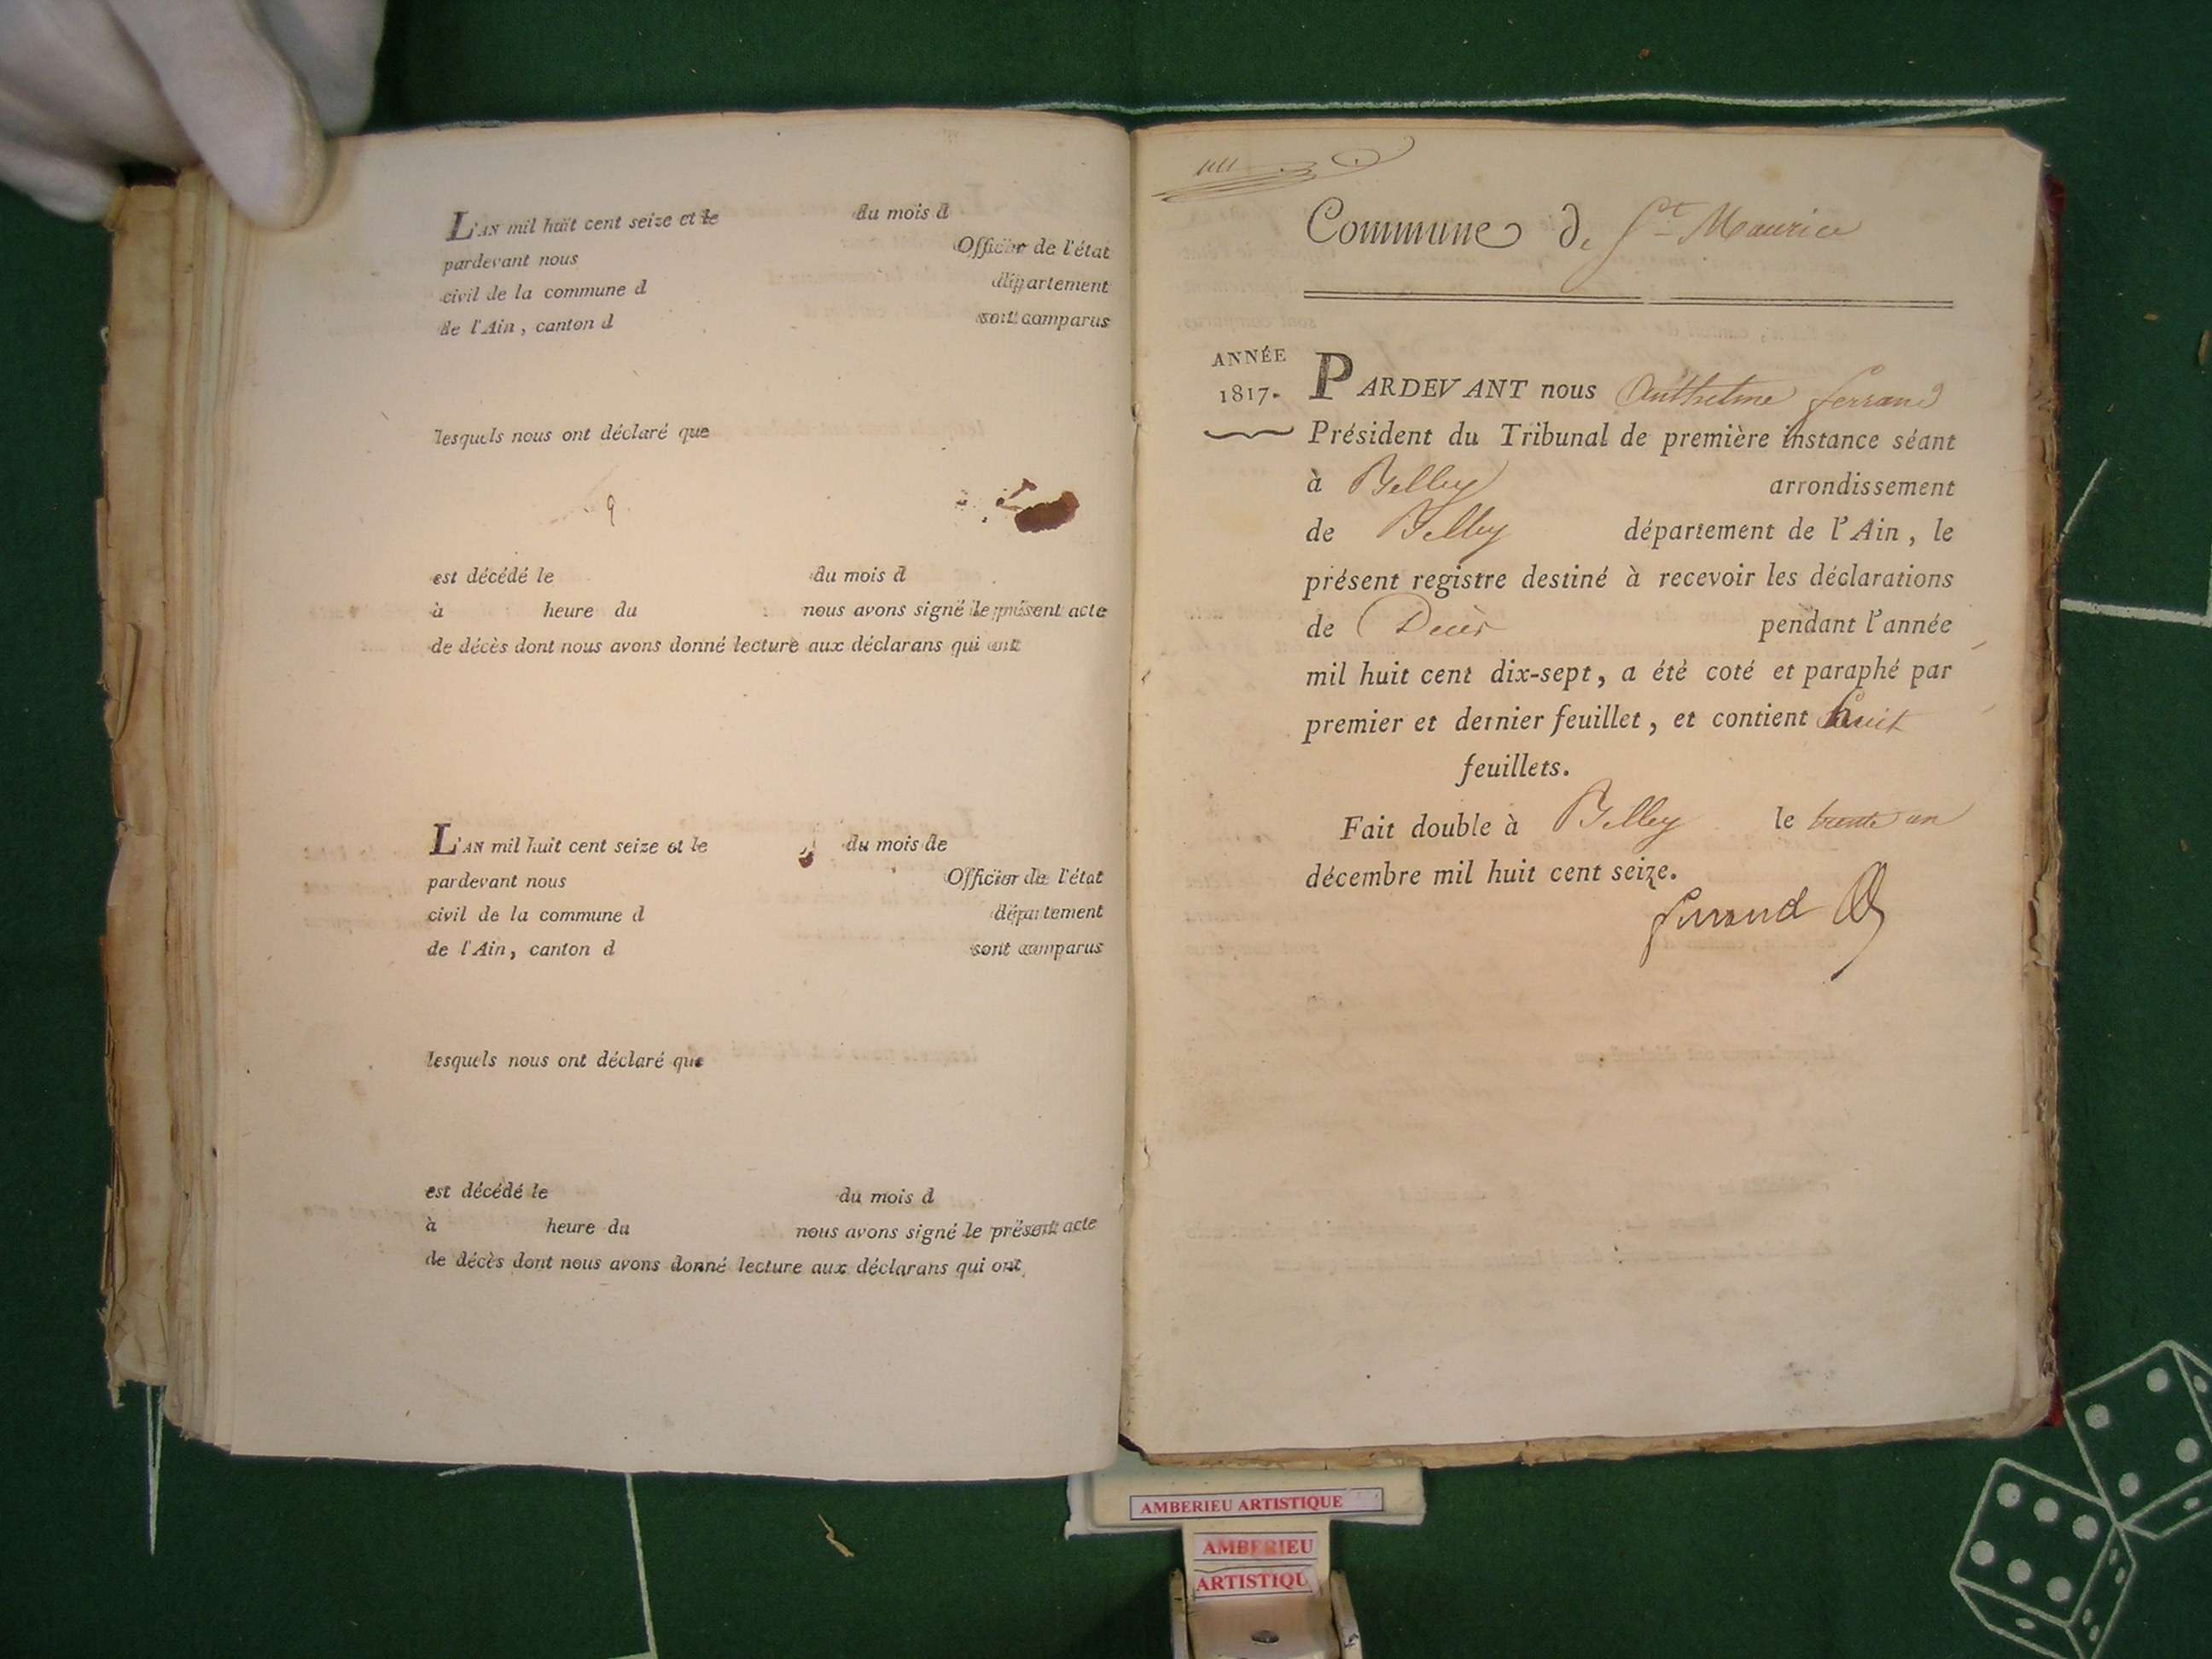 L'AN mil huit cent seize et le du mois d
pardevant nous Officier de l'état
civil de la commune d département
de l'Ain, canton d sont comparus
lesquels nous ont déclaré que
est décédé le du mois d
à heure du nous avons signé le présent acte
de décès dont nous avons donné lecture aux déclarans qui ont
L'AN mil huit cent seize et le du mois de
pardevant nous Officier de l'état
civil de la commune d département
de l'Ain, canton d sont comparus
lesquels nous ont déclaré que
est décédé le du mois d
à heure du nous avons signé le présent acte
de décès dont nous avons donné lecture aux déclarans qui ont
Commune de St Maurice
ANNÉE
1817.
PARDEVANT nous Anthelme ferrand
Président du Tribunal de première instance séant
à Belley arrondissement
de Belley département de l'Ain, le
présent registre destiné à recevoir les déclarations
de Décès pendant l'année
mil huit cent dix-sept, a été coté et paraphé par
premier et dernier feuillet, et contient huit
feuillets.
Fait double à Belley le trente un
décembre mil huit cent seize.
ferrand
AMBERIEU ARTISTIQUE
AMBERIEU
ARTISTIQU